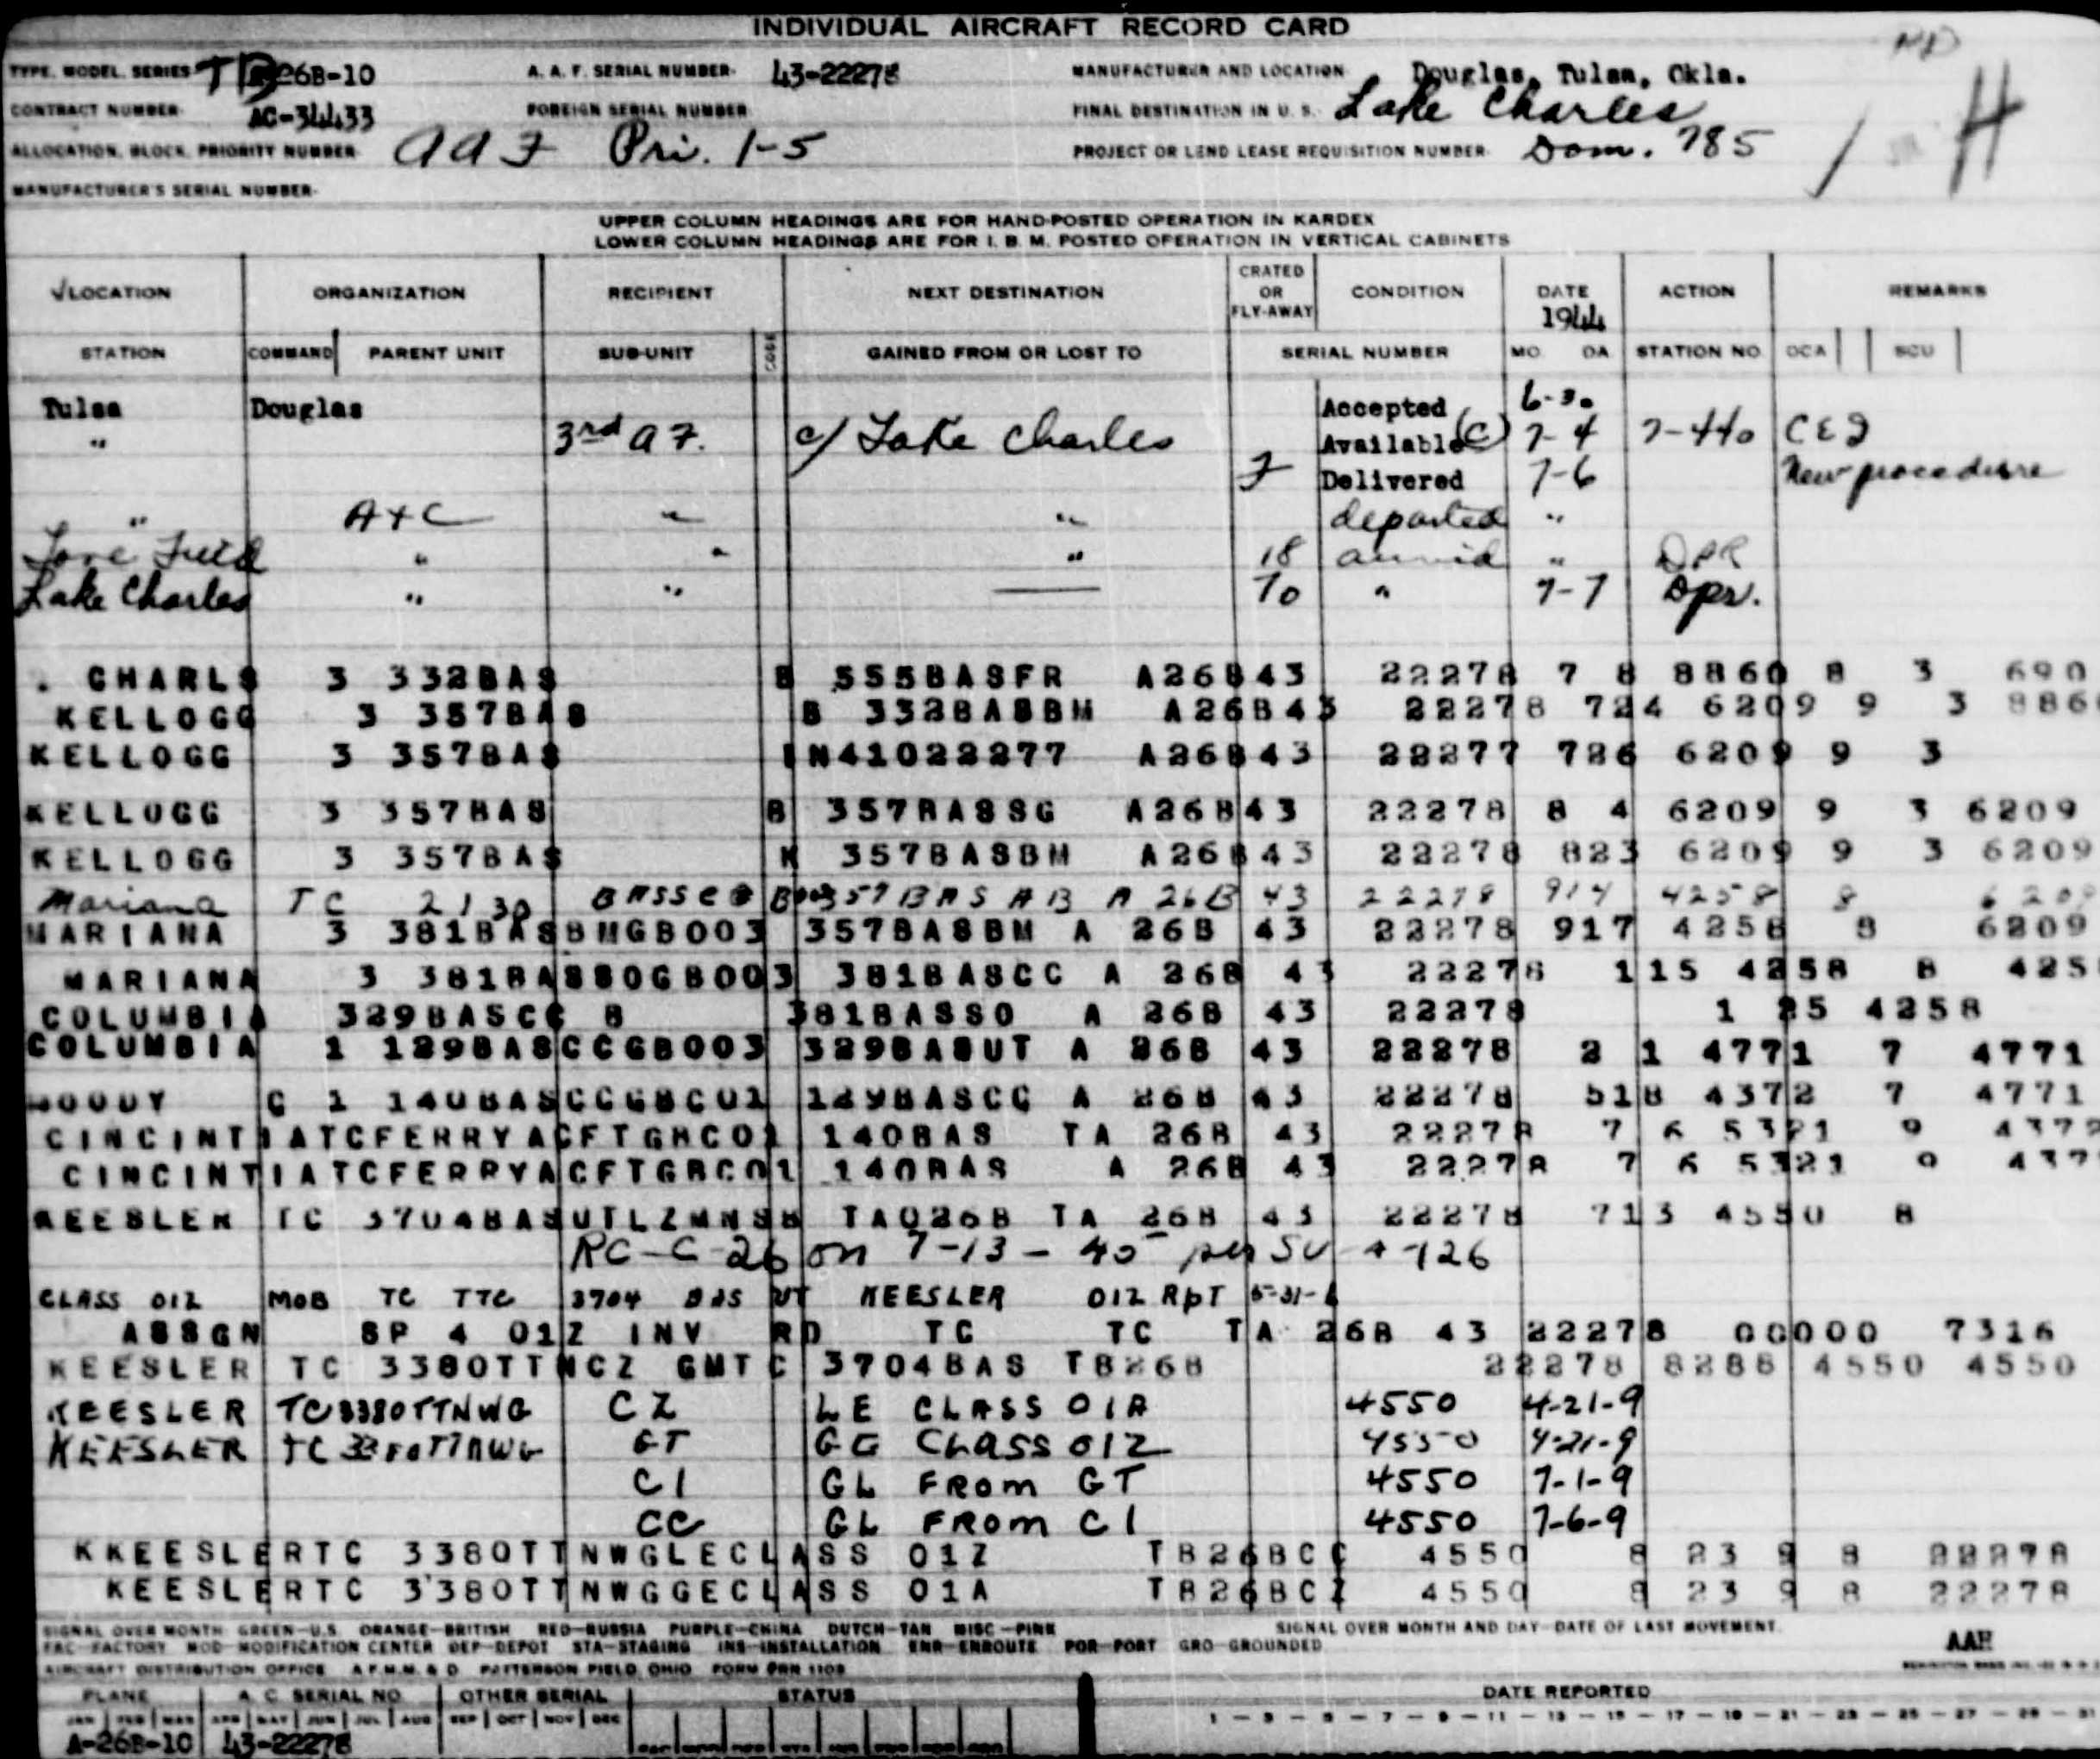 INDIVIDUAL AIRCRAFT RECORD CARD
TYPE, MODEL, SERIES TB 26B-10 A. A. F. SERIAL NUMBER 43-22278 MANUFACTURER AND LOCATION Douglas, Tulsa, Okla.
CONTRACT NUMBER AC-34433 FOREIGN SERIAL NUMBER FINAL DESTINATION IN U. S. Lake Charles
ALLOCATION, BLOCK, PRIORITY NUMBER AAF Pri. 1-5 PROJECT OR LEND LEASE REQUISITION NUMBER Dom. 785 / H
MANUFACTURER'S SERIAL NUMBER
UPPER COLUMN HEADINGS ARE FOR HAND-POSTED OPERATION IN KARDEX
LOWER COLUMN HEADINGS ARE FOR I. B. M. POSTED OPERATION IN VERTICAL CABINETS
√LOCATION ORGANIZATION RECIPIENT NEXT DESTINATION CRATED OR FLY-AWAY CONDITION DATE 1944 ACTION REMARKS
STATION COMMAND PARENT UNIT SUB-UNIT CODE GAINED FROM OR LOST TO SERIAL NUMBER MO. DA. STATION NO. OCA SCU
Tulsa Douglas Accepted 6-30
" 3rd AF. c/ Lake Charles Available (C) 7-4 7-440
F Delivered 7-6 New procedure
" " " departed "
Love Field " " " 18 " DPR
Lake Charles " " — 70 " 7-7 Dpr.
. CHARLS 3 332BAS B 555BASFR A26B43 22278 7 8 8860 8 3 690
KELLOGG 3 357BAS B 332BASBM A26B43 22278 724 6209 9 3 886
KELLOGG 3 357BAS N41022277 A26B43 22277 726 6209 9 3
KELLOGG 3 357BAS B 357BASSG A26B43 22278 8 4 6209 9 3 6209
KELLOGG 3 357BAS K 357BASBM A26B43 22278 823 6209 9 3 6209
Mariana TC 2130 357 BAS AB A 26B 43 22278 914 4258 8
MARIANA 3 381BASBMGB003 357BASBM A 26B 43 22278 917 4258 8 6209
MARIANA 3 381BASSOGB003 381BASCC A 26B 43 22278 115 4258 8 425
COLUMBIA 329BASCC B 381BASSO A 26B 43 22278 1 25 4258
COLUMBIA 1 129BASCCGB003 329BASUT A 26B 43 22278 2 1 4771 7 4771
MOODY C 1 140BASCCGBC01 129BASCC A 26B 43 22278 518 4372 7 4771
CINCINTIATCFERRYACFTGBC01 140BAS TA 26B 43 22278 7 6 5321 9 4372
CINCINTIATCFERRYACFTGBC01 140BAS A 26B 43 22278 7 6 5321 9 437
KEESLER TC 3704BASUTLZMNSB TA026B TA 26B 43 22278 713 4550 8
RC-C-26 on 7-13-45 per SU 4-126
CLASS 01Z MOB TC TTC 3704 BAS UT KEESLER 01Z RPT 5-31-
ASSGN SP 4 01Z INV RD TC TC TA 26B 43 22278 00000 7316
KEESLER TC 3380TTNCZ GMTC 3704BAS TB26B 22278 8288 4550 4550
KEESLER TC3380TTNWG CZ LE CLASS 01A 4550 4-21-9
KEESLER TC 3380TTNWG GT GG CLASS 01Z 4550 4-21-9
CI GL FROM GT 4550 7-1-9
CC GL FROM CI 4550 7-6-9
KKEESLERTC 3380TTNWGLECLASS 01Z TB26BCC 4550 8 23 9 8 22278
KEESLERTC 3380TTNWGGECLASS 01A TB26BCZ 4550 8 23 9 8 22278
SIGNAL OVER MONTH GREEN-U.S. ORANGE-BRITISH RED-RUSSIA PURPLE-CHINA DUTCH-TAN MISC-PINK SIGNAL OVER MONTH AND DAY-DATE OF LAST MOVEMENT.
FAC-FACTORY MOD-MODIFICATION CENTER DEP-DEPOT STA-STAGING INS-INSTALLATION ENR-ENROUTE POR-PORT GRO-GROUNDED AAH
AIRCRAFT DISTRIBUTION OFFICE A.F.M.M. & D. PATTERSON FIELD, OHIO FORM 1103
PLANE A. C. SERIAL NO. OTHER SERIAL STATUS DATE REPORTED
JAN FEB MAR APR MAY JUN JUL AUG SEP OCT NOV DEC 1 - 3 - 5 - 7 - 9 - 11 - 13 - 15 - 17 - 19 - 21 - 23 - 25 - 27 - 29 - 31
A-26B-10 43-22278